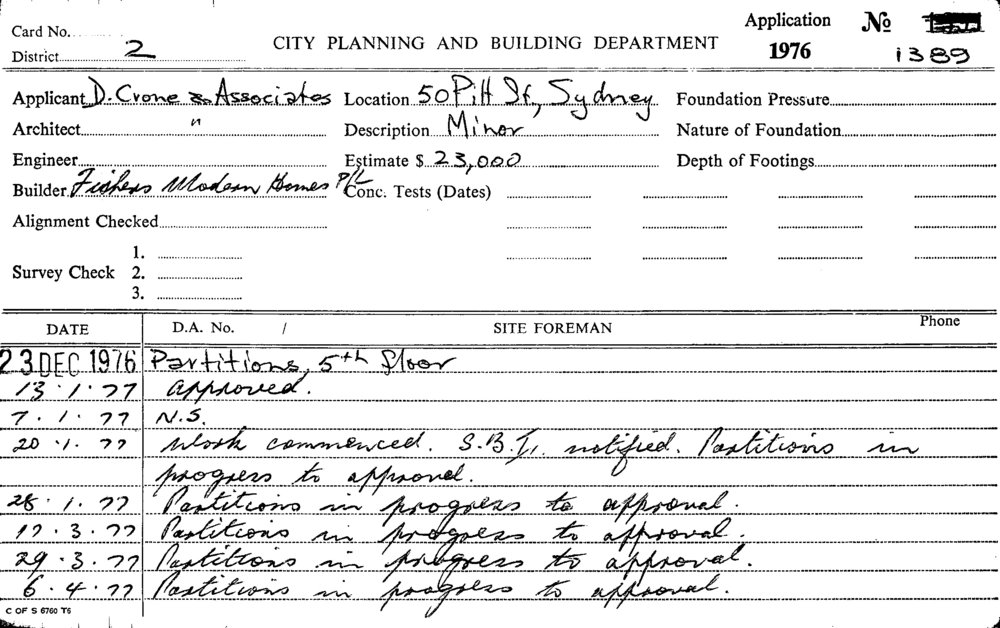 Card No.
Application No
District 2
CITY PLANNING AND BUILDING DEPARTMENT
1976
1389
Applicant D. Crone & Associates Location 50 Pitt St, Sydney Foundation Pressure
Architect " Description Minor Nature of Foundation
Engineer Estimate $ 23,000 Depth of Footings
Builder Fishers Modern Homes P/L Conc. Tests (Dates)
Alignment Checked
1.
Survey Check 2.
3.
DATE D.A. No. / SITE FOREMAN Phone
23 DEC 1976 Partitions, 5th floor
13.1.77 Approved.
7.1.77 N.S.
20.1.77 Work commenced. S.B.I. notified. Partitions in
progress to approval.
28.1.77 Partitions in progress to approval.
17.3.77 Partitions in progress to approval.
29.3.77 Partitions in progress to approval.
6.4.77 Partitions in progress to approval.
C OF S 6760 T6